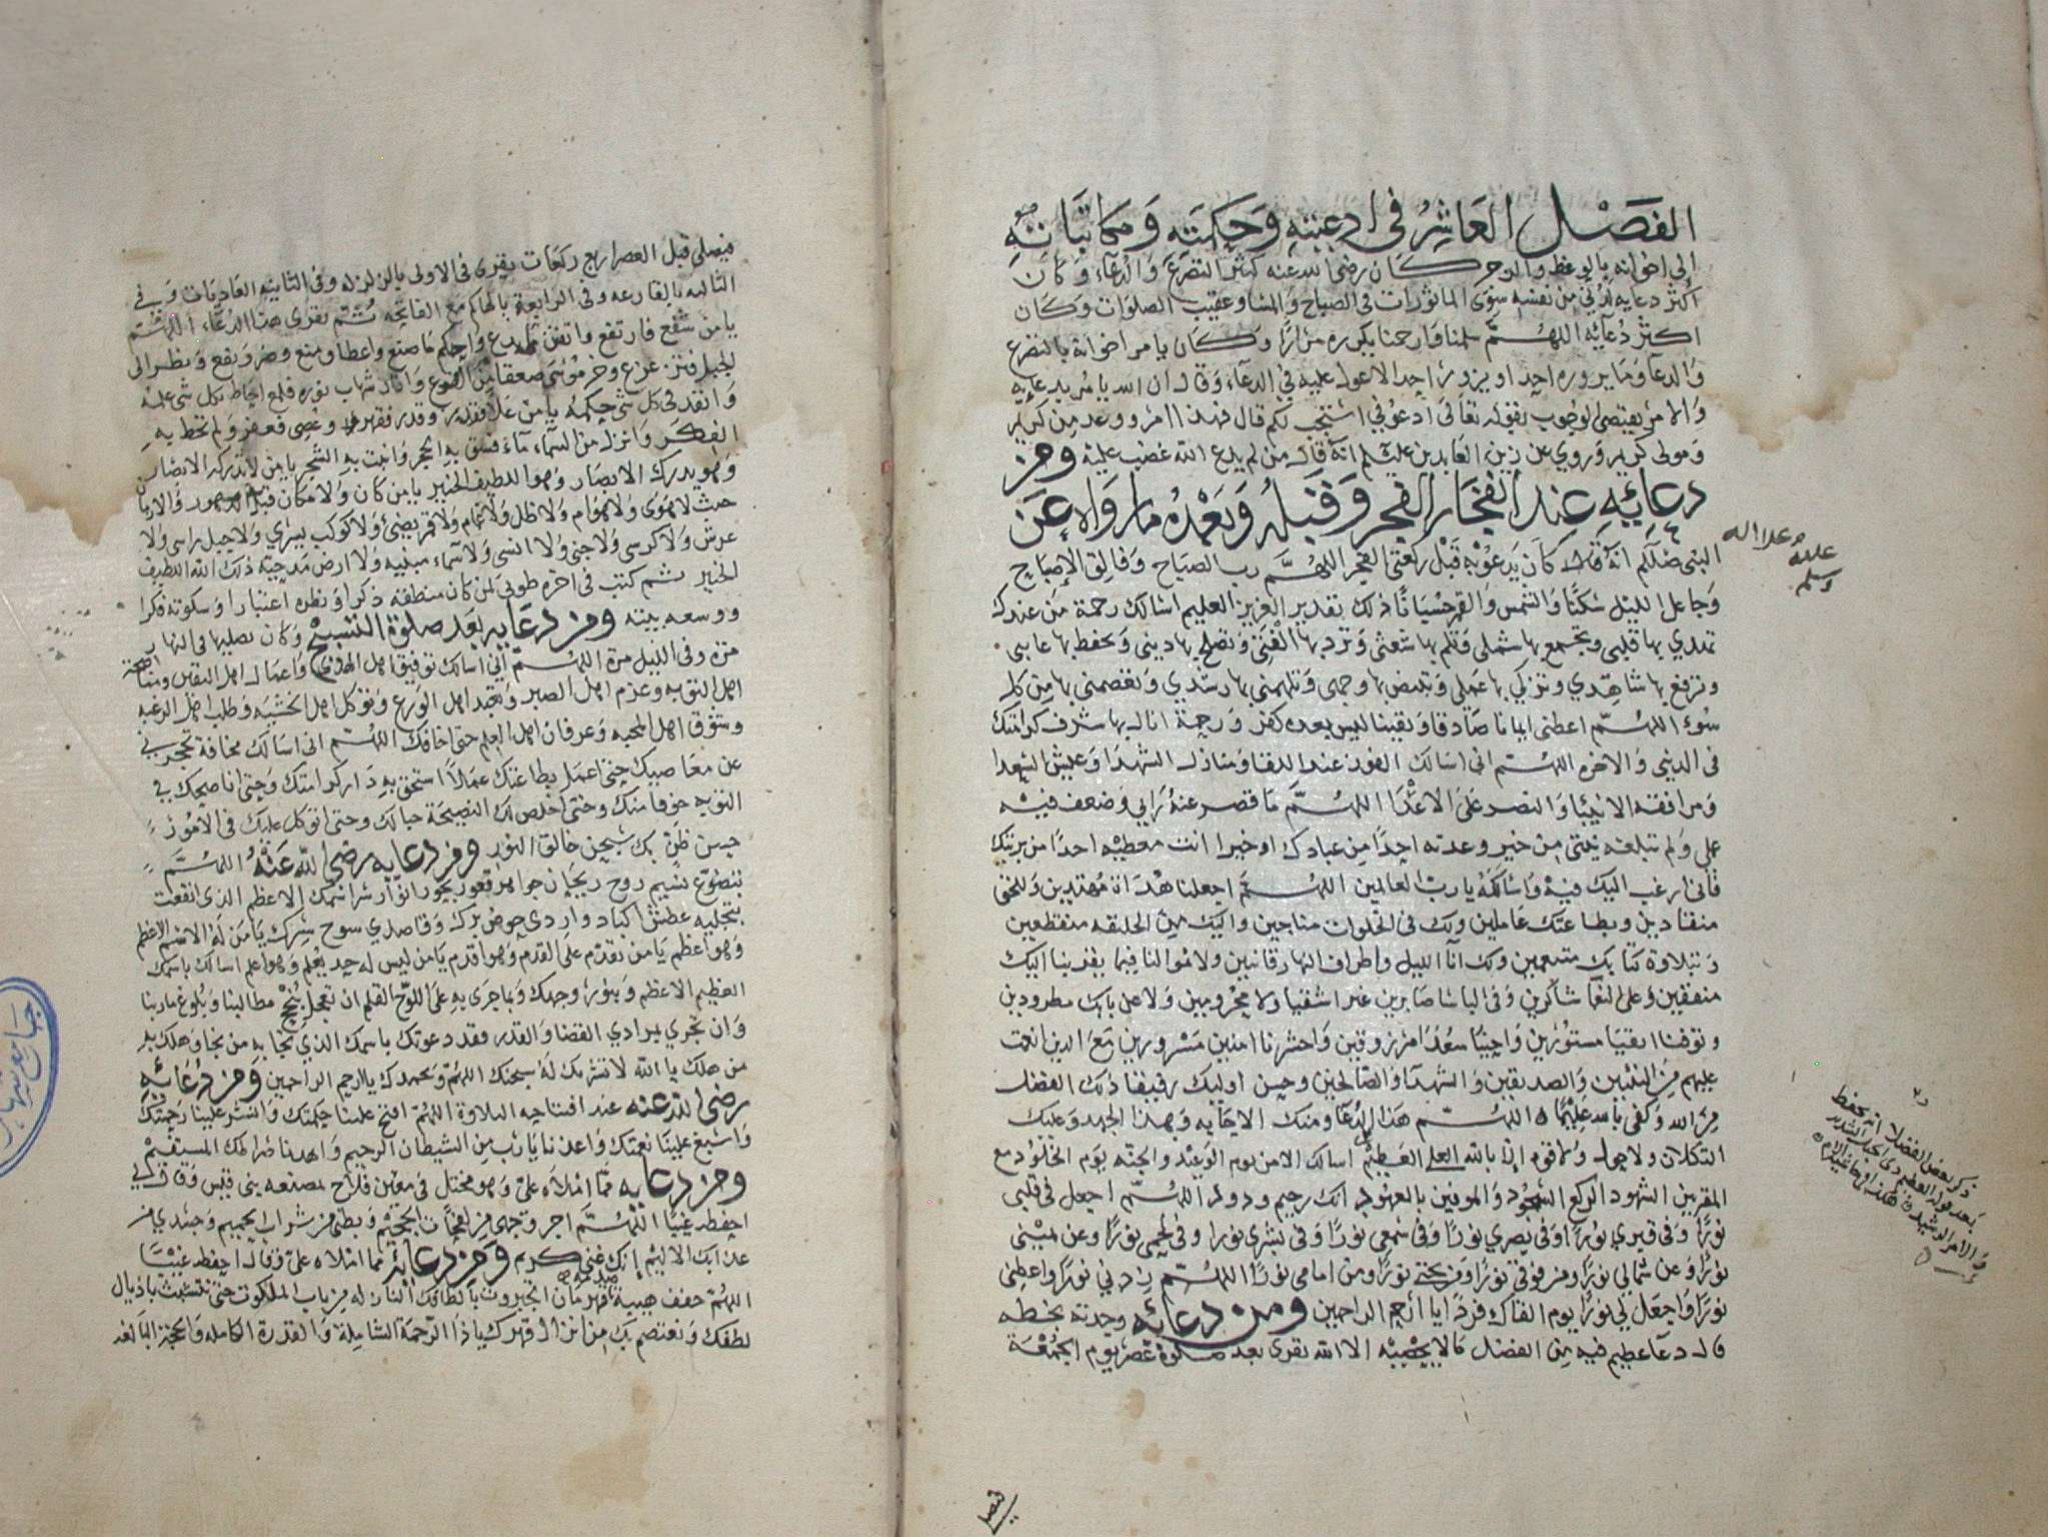 الفصل العاشر في ادعيته وحكمته ومكاتباته
الى اخوانه بالوعظ والزجر كان رضي الله عنه كثير التضرع والدعاء وكان
اكثر دعايه لدني من نفسه سوى الماثورات في الصباح والمسا وعقيب الصلوات وكان
اكثر دعآئه اللهم سلمنا وارحمنا يكرره مرارًا وكان يامر اخوانه بالتضرع
والدعا وما يزوره احد او يزور احدا الا عول عليه في الدعآء وقال ان الله يامر بدعايه
والامر يقتضي الوجوب بقوله تعالى ادعوني استجب لكم قال فهذا امر ووعد من كريم
ومولى كريم وروي عن زين العابدين عليلم انه قال من لم يدع الله غضب عليه ومن
دعائه عند انفجار الفجر وقبله وبعده ما رواه عن
النبي صللم انه قال كان يدعو به قبل ركعتي الفجر اللهم رب الصباح وفالق الإصباح
وجاعل الليل سكنًا والشمس والقمر حسبانًا ذلك تقدير العزيز العليم اسالك رحمة من عندك
تهدي بها قلبي وتجمع بها شملي وتلم بها شعثي وترد بها الفتن وتصلح بها ديني وتحفظ بها غايبي
وترفع بها شاهدي وتزكي بها عملي وتبيض بها وجهي وتلهمني بها رشدي وتعصمني بها من كل
سوء اللهم اعطني ايمانا صادقا ويقينا ليس بعده كفر ورحمة انال بها شرف كرامتك
في الدنيا والاخره اللهم اني اسالك الفوز عند اللقا ومنازل الشهدا وعيش السعدا
ومرافقة الانبيا والنصر على الاعدا اللهم ما قصر عنه رايي وضعف فيه
عملي ولم تبلغه نيتي من خير وعدته احدًا من عبادك او خيرا انت معطيه احدًا من بريتك
فاني ارغب اليك فيه واسالكه يا رب العالمين اللهم اجعلنا هداة مهتدين وللحق
منقادين وبطاعتك عاملين وبك في الخلوات مناجين واليك من الخليقه منقطعين
وبتلاوة كتابك متنعمين ولك آنآ الليل واطراف النهار قانتين ولاموالنا فيما يقربنا اليك
منفقين وعلى النعمآ شاكرين وفي الباسا صابرين غير اشقيا ولا محرومين ولا عن بابك مطرودين
وتوفنا اتقيا مستورين واحينا سعدا مرزوقين واحشرنا امنين مسرورين مع الذين انعمت
عليهم من النبيين والصديقين والشهدآ والصالحين وحسن اوليك رفيقا ذلك الفضل
من الله وكفى بالله عليمًا اللهم هذا الدعا ومنك الاجابه وهذا الجهد وعليك
التكلان ولا حول ولا قوه إلا بالله العلي العظيم اسالك الامن يوم الوعيد والجنه يوم الخلود مع
المقربين الشهود الركع السجود والموفين بالعهود انك رحيم ودود اللهم اجعل في قلبي
نورًا وفي قبري نورًا وفي بصري نورًا وفي سمعي نورًا وفي بشري نورا وفي لحمي نورًا وعن يميني
نورًا وعن شمالي نورًا ومن فوقي نورًا ومن تحتي نورًا ومن امامي نورًا اللهم زدني نورًا واعطني
نورًا واجعل لي نورًا يوم القاك فردًا يا ارحم الراحمين ومن دعايه وجدته بخطه
قال دعآ عظيم فيه من الفضل ما لا يحصيه الا الله يقرى بعد صلوة عصر يوم الجمعة
صلى الله
عليه
وسلم
ذكر بعض الفضلا انه يحفظ
بعد قوله العظيم ذي الحبل الشديد
والامر الرشيد
فيصلي
فيصلي قبل العصر اربع ركعات يقرى في الاولى بالزلزله وفي الثانيه العاديات وفي
الثالثه بالقارعه وفي الرابعة بالهاكم مع الفاتحه ثم يقرى هذا الدعآء اللهم
يا من شمخ فارتفع واتقن ما بدع واحكم ما صنع واعطا ومنع وضر ونفع ونظر الى
الجبل فتزعزع وخر موسى صعقا من الفزع وانار شهاب نوره فلمع احاط بكل شي علمه
وانقد في كل شي حكمه يا من علا فقدر وقدر فقهر وعصي فغفر ولم تحط به
الفكر وانزل من السماء مآء فشق به الحجر وانبت به الشجر يا من لا تدركه الابصار
وهو يدرك الابصار وهو اللطيف الخبير يا من كان ولا مكان قبل الدهور والازمان
حيث لا هوى ولا هوام ولا ظل ولا غمام ولا قمر يضئ ولا كوكب يسري ولا جبل راسى ولا
عرش ولا كرسى ولا جنى ولا انسى ولا سماء مبنيه ولا ارض مدحيه ذلك الله اللطيف
الخبير ثم كتب في اخره طوبى لمن كان منطقه ذكرا ونظره اعتبارا وسكوته فكرا
ووسعه بيته ومن دعايه بعد صلوة التسبيح وكان يصليها في النهار
مره وفي الليل مرة اللهم اني اسالك توفيق اهل الهدى واعمال اهل اليقين ومناصحة
اهل التوبه وعزم اهل الصبر وتعبد اهل الورع وتوكل اهل الخشيه وطلب اهل الرغبه
وشوق اهل المحبه وعرفان اهل العلم حتى اخافك اللهم اني اسالك مخافة تحجزني
عن معاصيك حتى اعمل بطاعتك عملاً استحق به دار كرامتك وحتى اناصحك في
التوبه خوفا منك وحتى اخلص لك النصيحة حبا لك وحتى اتوكل عليك في الامور
حسن ظن بك سبحن خالق النور ومن دعايه رضي الله عنه اللهم
بتضوع نسيم روح ريحان جواهر قعور بحور انوار شر اسمك الاعظم الذي انقعت
بتجليه عطش اكباد واردي حوض برك وقاصدي سوح سرك يا من له الاسم الاعظم
وهو اعظم يا من تقدم على القدم وهو اقدم يا من ليس له حد يعلم وهو اعلم اسالك باسمك
العظيم الاعظم وبنور وجهك وبما جرى به على اللوح القلم ان تعجل بنجح مطالبنا وبلوغ ماربنا
وان تجري بمرادي القضا والقدر فقد دعوتك باسمك الذي نجا به من نجا وهلك به
من هلك يا الله لا نشرك له سبحنك اللهم وبحمدك يا ارحم الراحمين ومن دعائه
رضي الله عنه عند افتتاحيه التلاوة اللهم افتح علينا حكمتك وانشر علينا رحمتك
واسبغ علينا نعمتك واعذنا يا رب من الشيطان الرجيم واهدنا صراطك المستقيم
ومن دعايه مما املاه علي وهو مختل في معين فلاح لمصنعه بني قيس وقال لي
احفظه غيبًا اللهم اجر وجهي من لفحات الجحيم وبطني من شراب الحميم وجسدي من
عذابك الاليم إنك غني كريم ومن دعائه مما املاه علي وقال احفظه غيبًا
اللهم خفف هيبة قهرمان الجبروت بالطافك النازله من باب الملكوت حتى نتشبث باذيال
لطفك ونعتصم بك من انزال قهرك يا ذا الرحمة الشاملة والقدرة الكامله والحجة البالغه